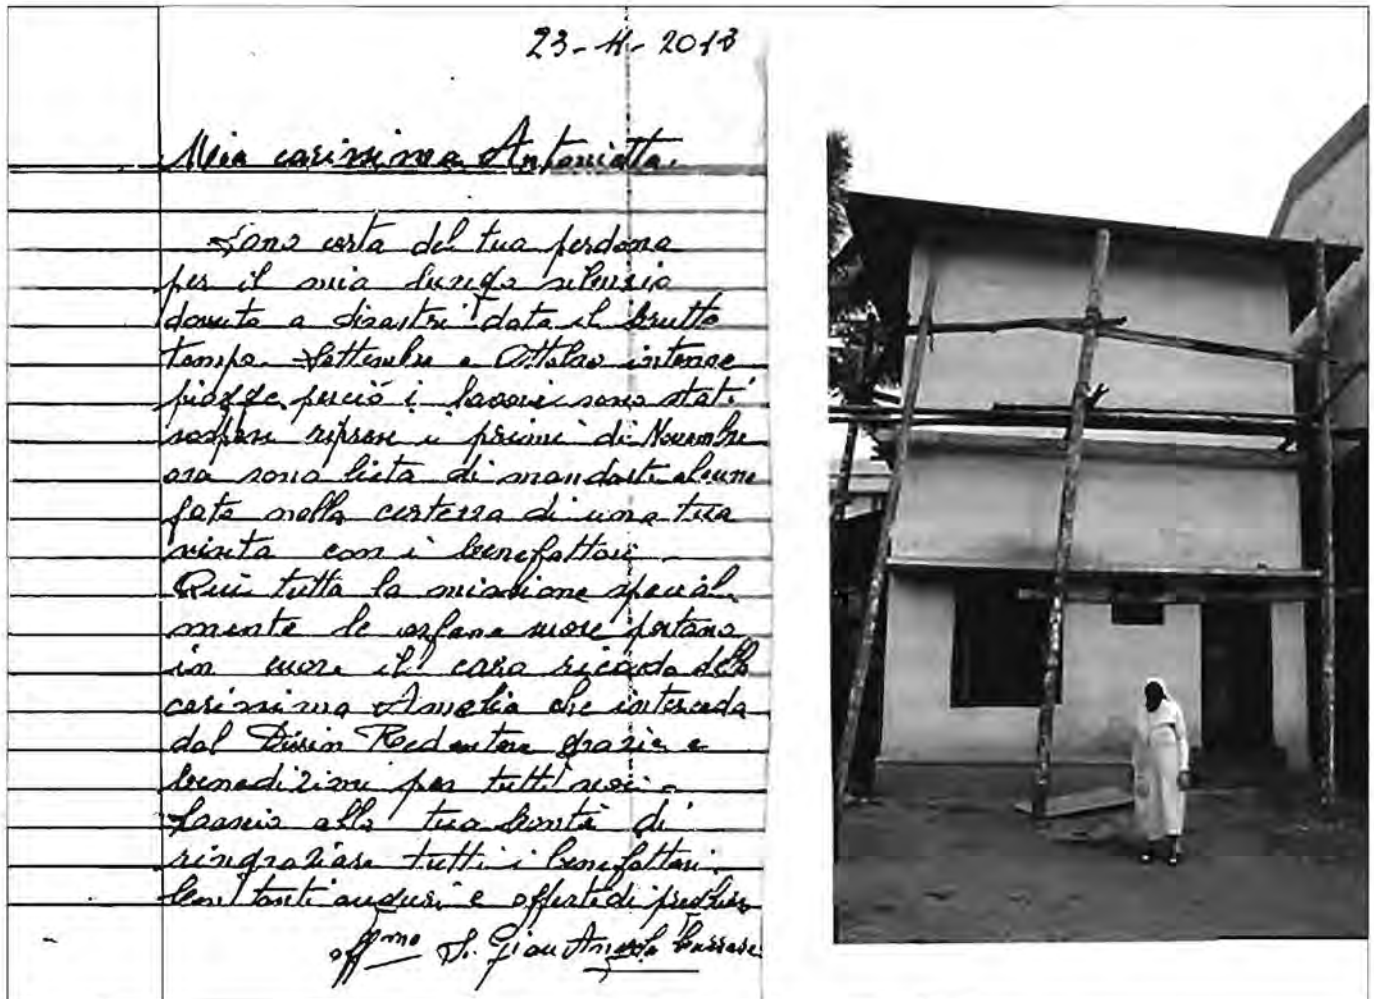 23-11-2013
Mia carissima Antonietta.
Sono certa del tuo perdono
per il mio lungo silenzio
dovuto a disastri data il brutto
tempo Settembre e Ottobre intense
piogge perciò i lavori sono stati
sospesi ripresi i primi di Novembre
ora sono lieta di mandarti alcune
foto nella certezza di una tua
visita con i benefattori
Qui tutta la missione special
mente le orfane suore portano
in cuore il caro ricordo della
carissima Amelia che interceda
dal Divin Redentore grazie e
benedizioni per tutti noi -
Lascio alla tua bontà di
ringraziare tutti i benefattori.
Con tanti auguri e offerte di preghiere
aff.ma S. Gian